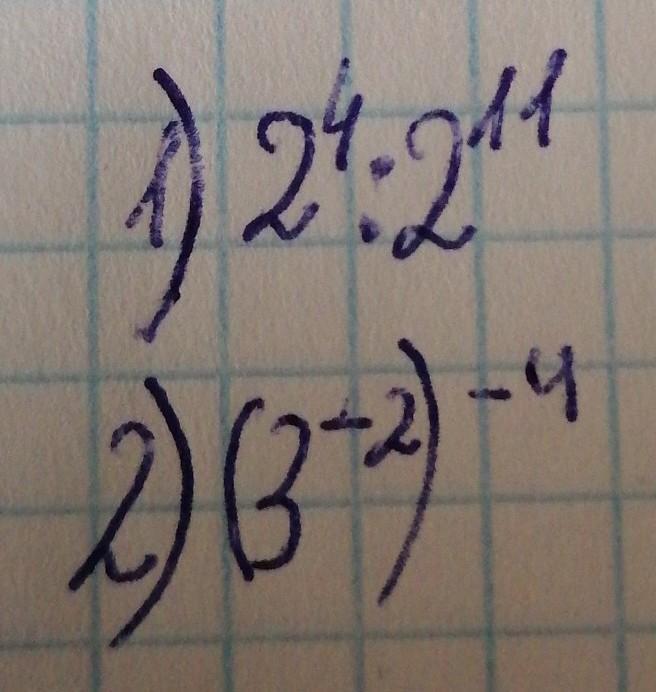 1) 2⁴ : 2¹¹
2) (3⁻²)⁻⁴